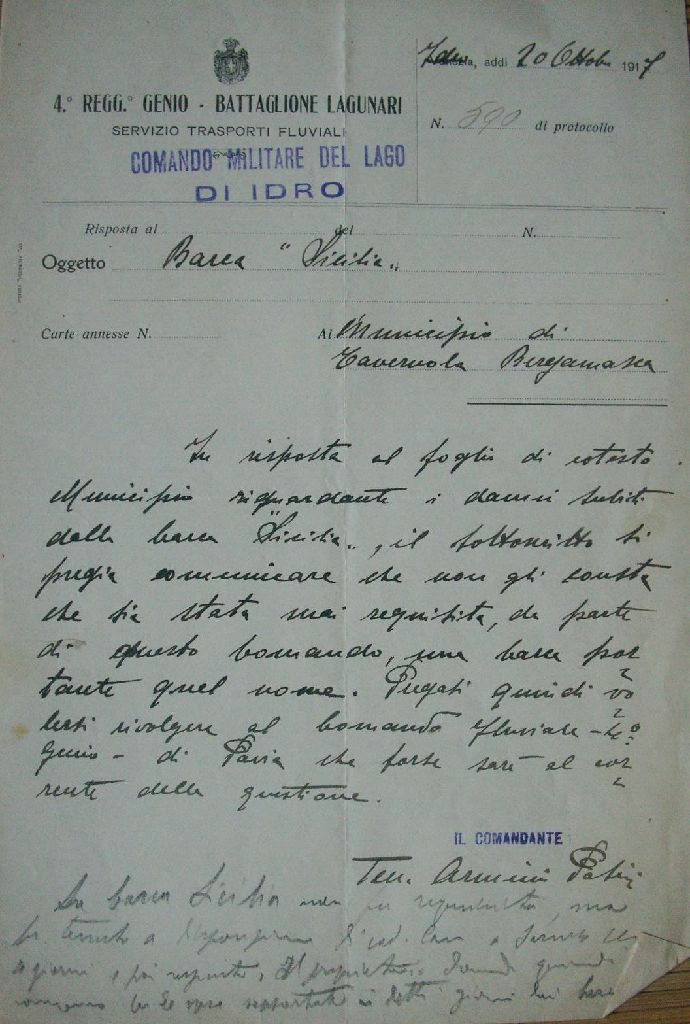 Idro, addì 20 Ottobre 1917
4.° REGG.° GENIO - BATTAGLIONE LAGUNARI
SERVIZIO TRASPORTI FLUVIALI
N. 590 di protocollo
COMANDO MILITARE DEL LAGO
DI IDRO
Risposta al del N.
Oggetto Barca "Sicilia„
Carte annesse N. Al Municipio di
Tavernola Bergamasca
In risposta al foglio di cotesto
Municipio riguardante i danni subiti
dalla barca "Sicilia„, il sottoscritto si
pregia comunicare che non gli consta
che sia stata mai requisita, da parte
di questo Comando, una barca por
tante quel nome. Pregasi quindi vo
lersi rivolgere al Comando Fluviale - 4°
Genio - di Pavia che forse sarà al cor
rente della questione.
IL COMANDANTE
Ten. Armini
La barca Sicilia non fu requisita, ma
tenuta a disposizione
giorni e poi Il proprietario domanda quindi
le spese sopportate in detti giorni